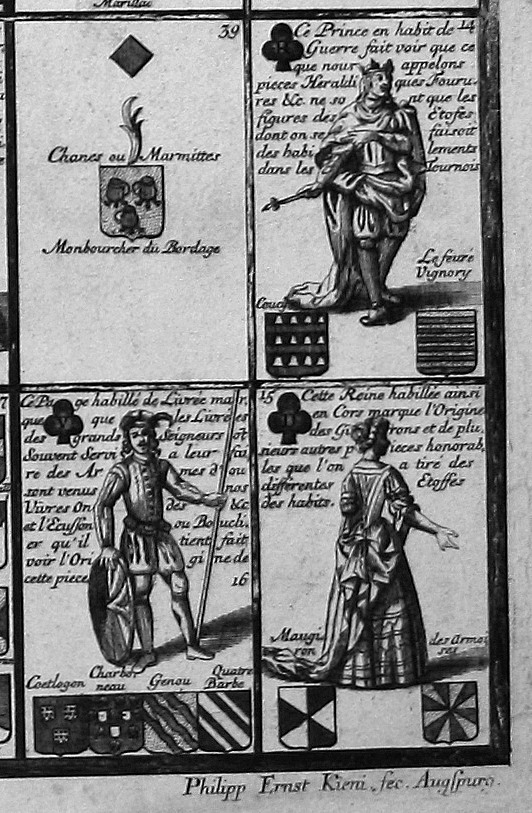 Marillac
39
Chanes ou Marmittes
Monbourcher du Bordage
14
R
Ce Prince en habit de
Guerre fait voir que ce
que nous appelons
pieces Heraldi ques Fouru-
res &c. ne so nt que les
figures des Etofes
dont on se faisoit
des habi lements
dans les Tournois
Le feuré
Vignory
Coucy
V
Ce Page habillé de Livrée mar,
que que les Livrées
des grands Seigneurs ōt
Souvent Servi a leur fai
re des Ar mes d'ou
sont venus nos
Vivres On des &c
et l'Ecusson ou Bouc li,
er qu'il tient fait
voir l'Ori gi ne de
cette piece
16
Coetlogon
Charbo neau
Genou
Quatre Barbe
15
D
Cette Reine habillée ainsi
en Cors marque l'Origine
des Gi rons et de plu,
sieurs autres p ieces honorab,
les que l'on a tire des
différentes Etoffes
des habits.
Maugi
ron
des Armoi
ses
Philipp Ernst Kieni. fec. Augspurg.